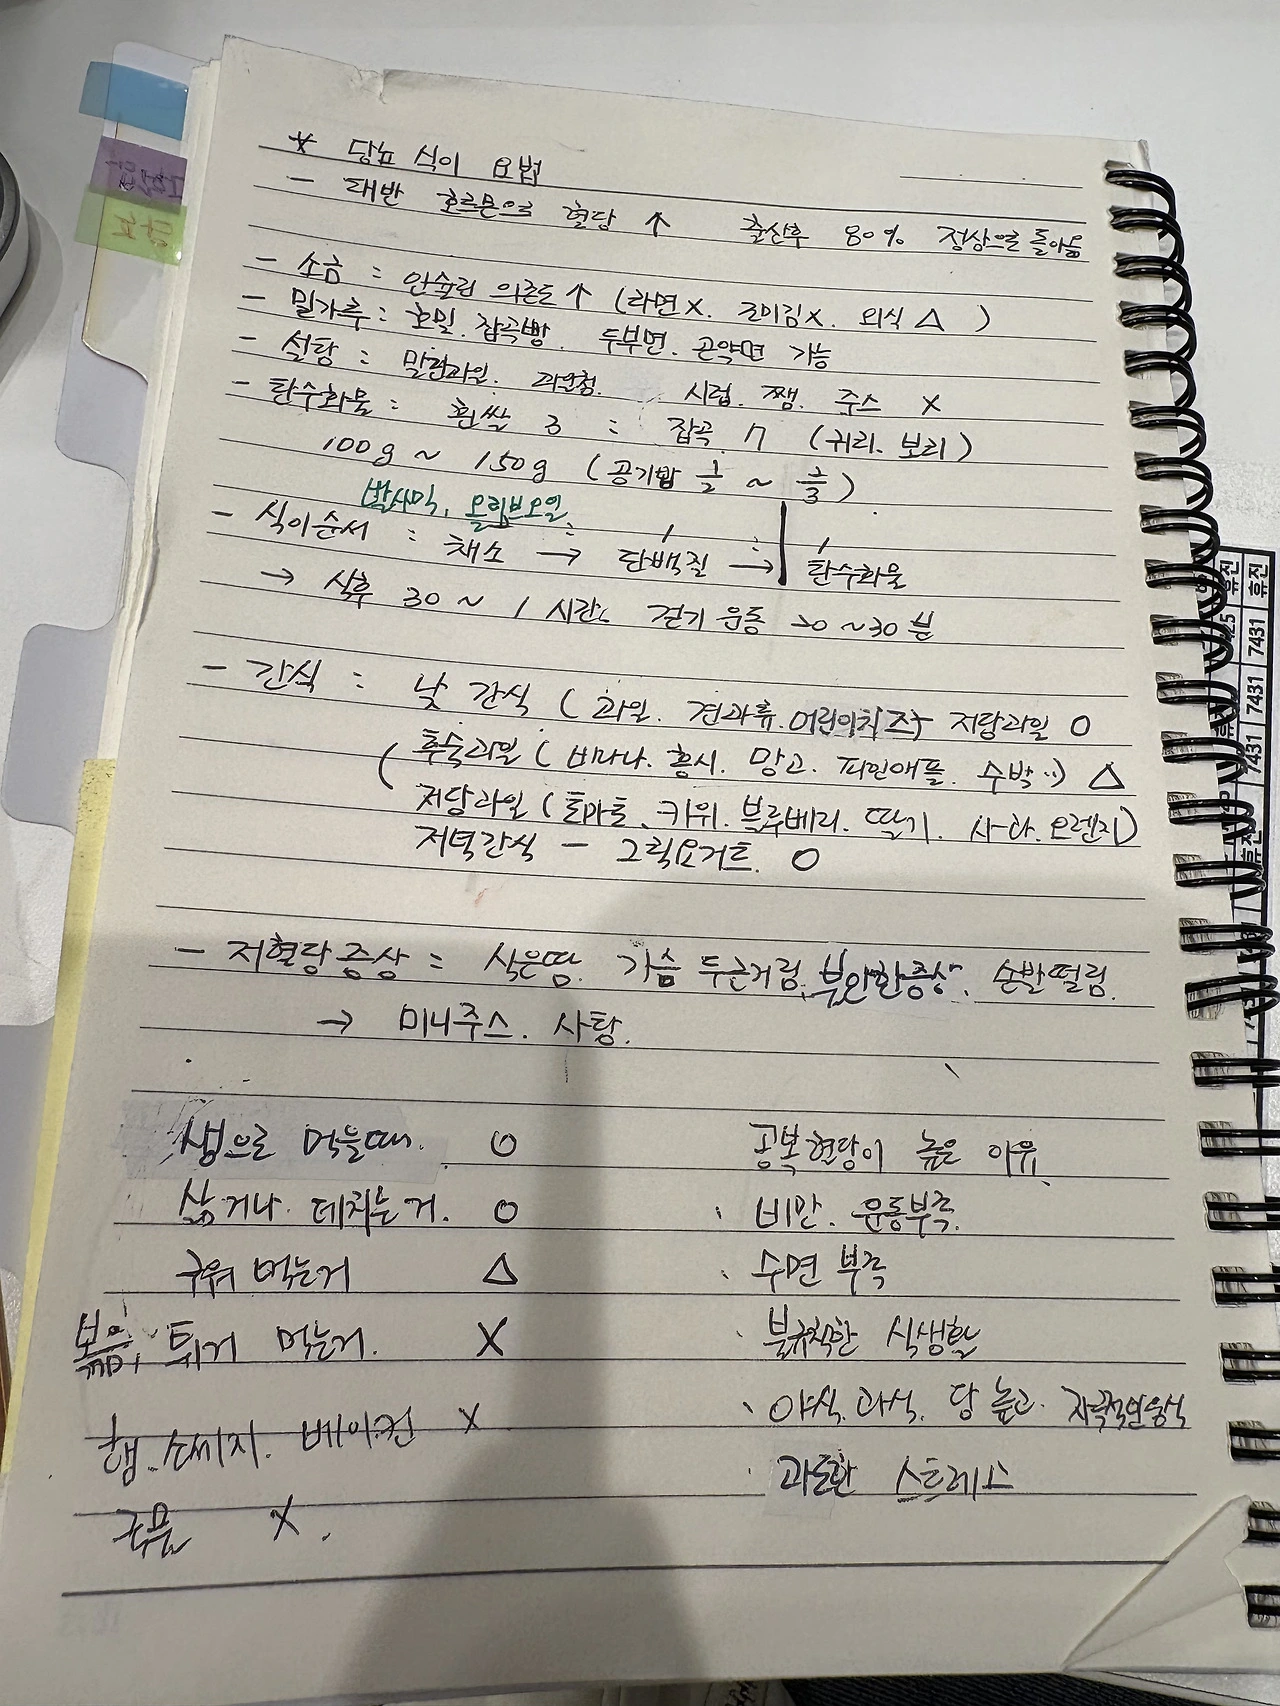 * 당뇨 식이 요법
- 태반 호르몬으로 혈당 ↑ 출산후 80% 정상으로 돌아옴
- 소금 : 인슐린 의존도 ↑ (라면 X. 조미김 X. 외식 △ )
- 밀가루 : 호밀. 잡곡빵. 두부면. 곤약면 가능
- 설탕 : 말린과일. 과일청. 시럽. 쨈. 주스 X
- 탄수화물 : 흰쌀 3 : 잡곡 7 (귀리. 보리)
100g ~ 150g (공기밥 1/2 ~ 2/3 )
발사믹, 올리브오일
- 식이순서 : 채소 → 단백질 → 탄수화물
→ 식후 30 ~ 1 시간. 걷기 운동 20 ~ 30 분
- 간식 : 낮 간식 ( 과일. 견과류. 어린이치즈 저당과일 O
후숙과일 ( 바나나. 홍시. 망고. 파인애플. 수박 ··) △
저당과일 (토마토. 키위. 블루베리. 딸기. 사과. 오렌지)
저녁간식 - 그릭요거트. O
- 저혈당증상 : 식은땀. 가슴 두근거림. 부안한증상. 손발떨림.
→ 미니주스. 사탕.
생으로 먹을때. O
삶거나 데치는거. O
구워 먹는거 △
볶음, 튀겨 먹는거. X
햄. 소세지. 베이컨 X
국물 X.
공복혈당이 높은 이유.
· 비만. 운동부족.
· 수면 부족
· 불규칙한 식생활
· 야식. 과식. 당 높고. 자극적인음식
· 과도한 스트레스
휴진
휴진
7431
7431
7431
7431